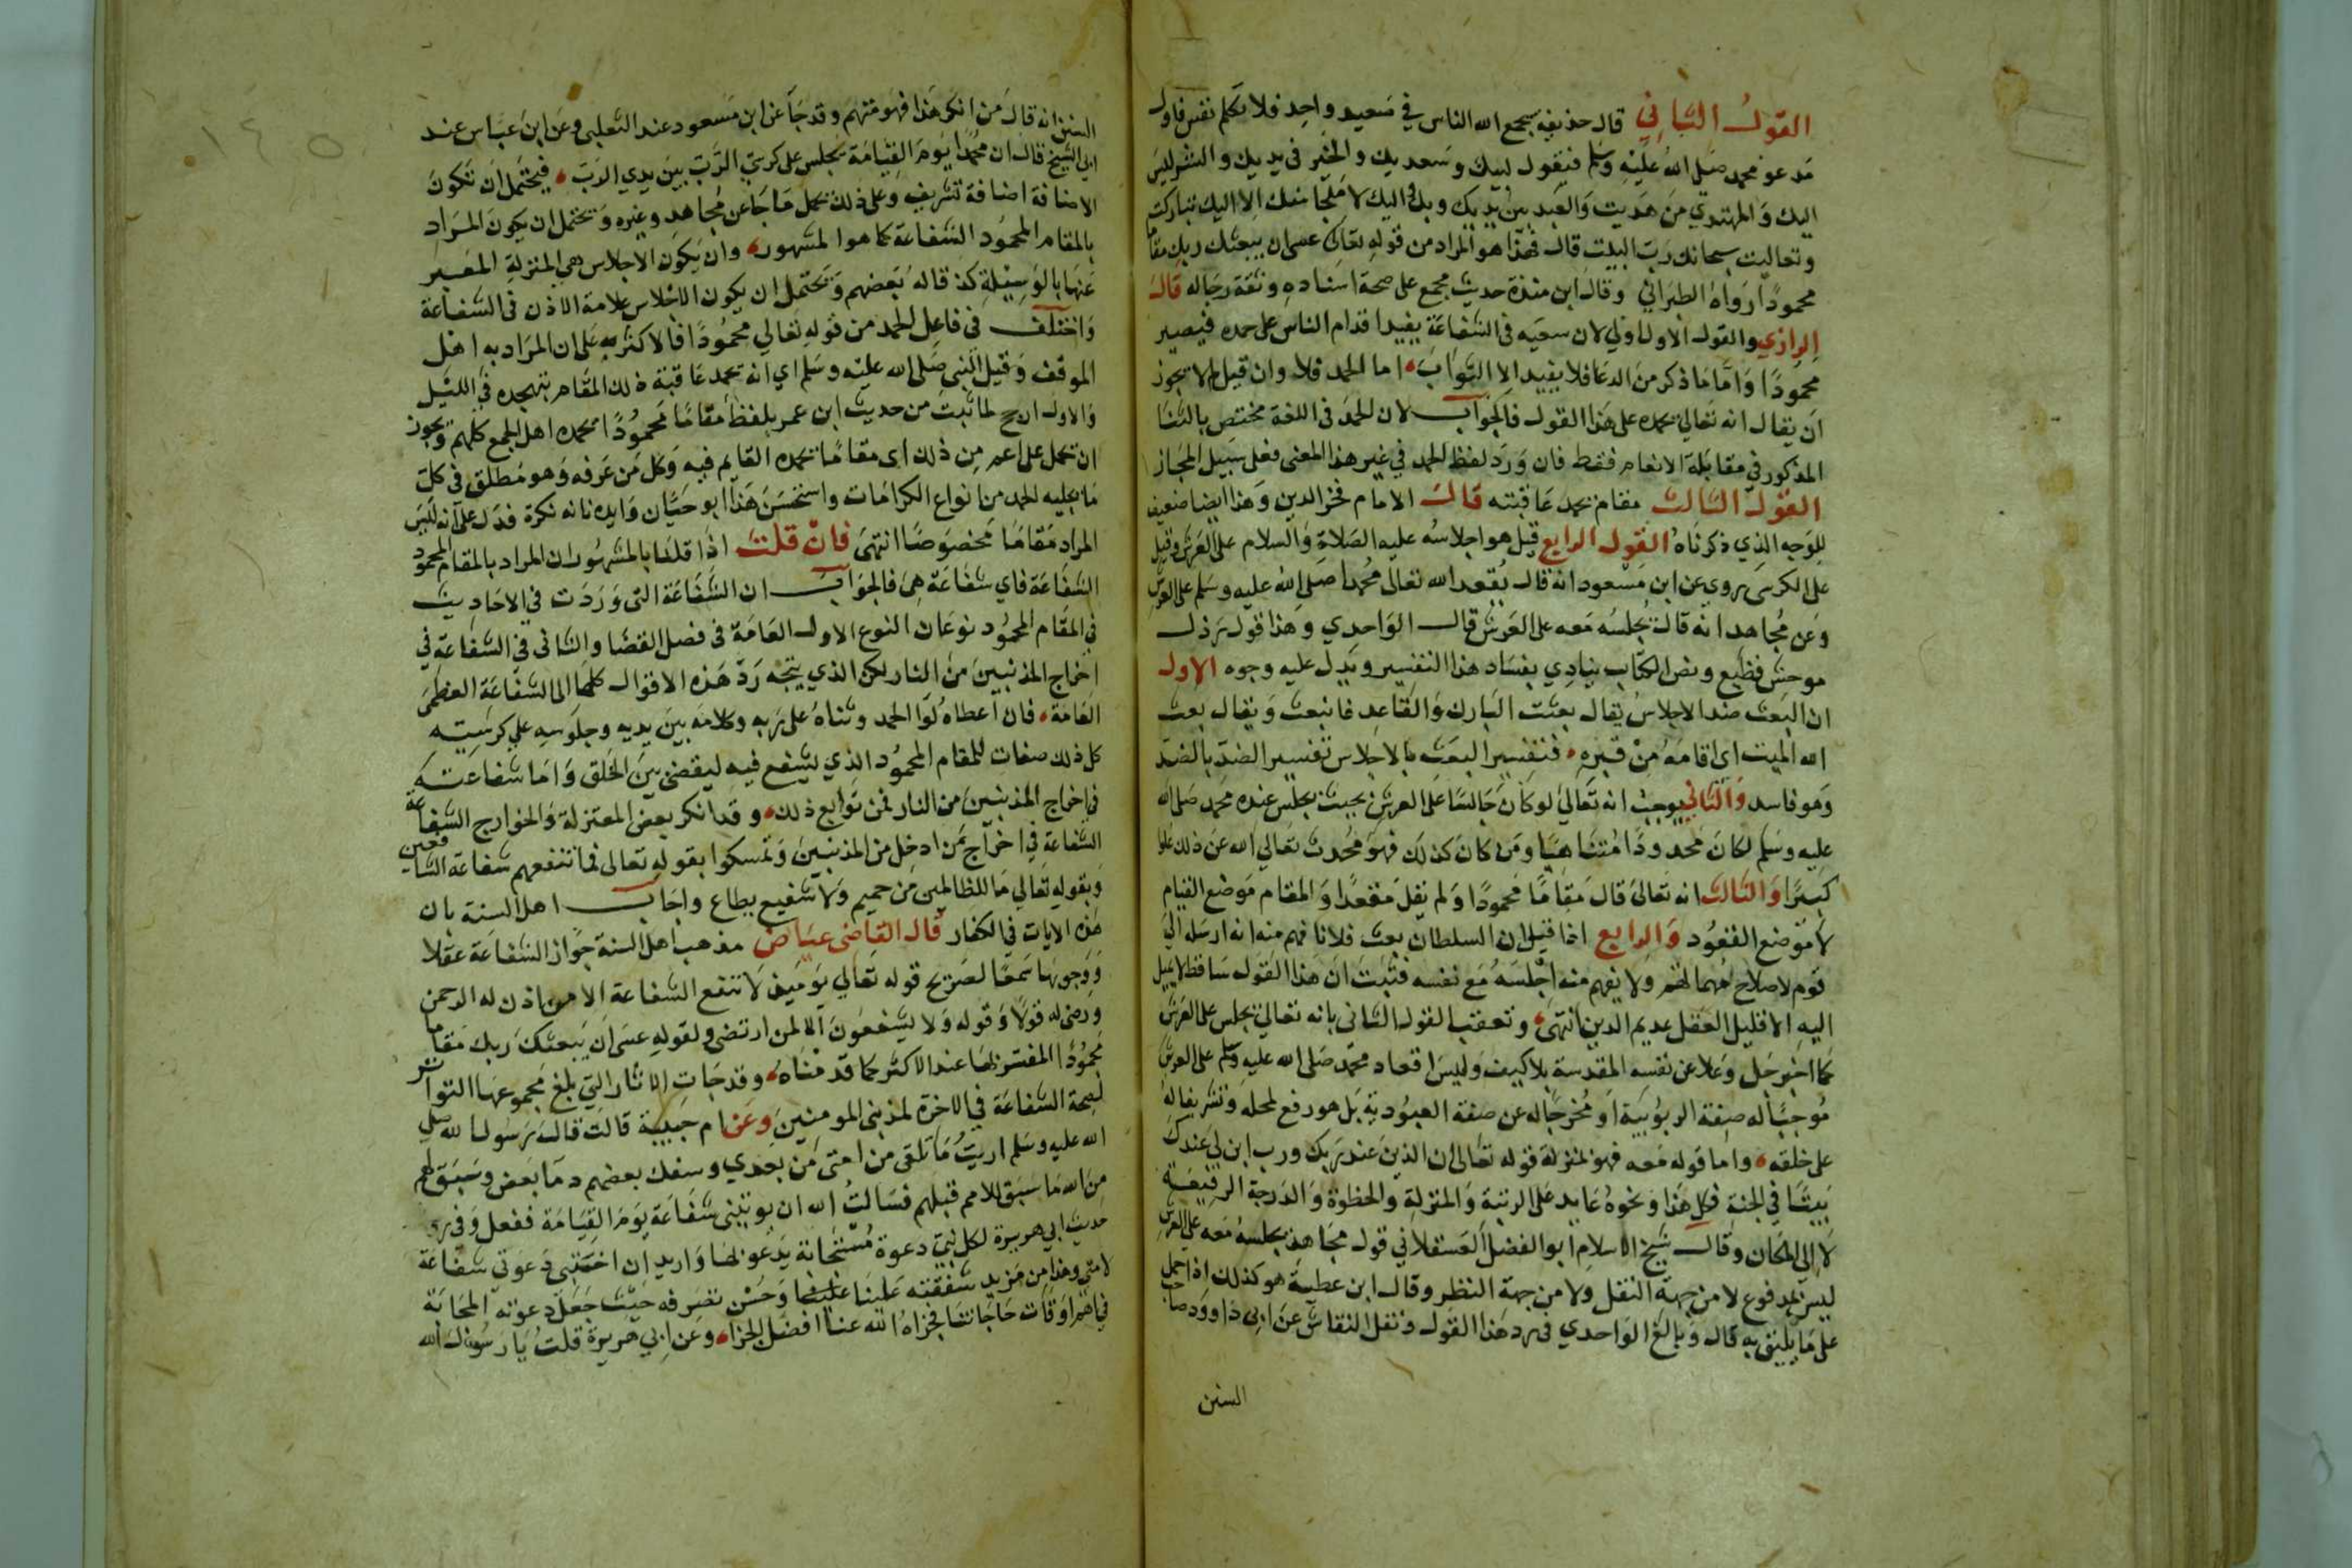 القول الثاني قال حذيفة يجمع الله الناس في صعيد واحد فلا تكلم نفس فاول
مدعو محمد صلى الله عليه وسلم فيقول لبيك وسعديك والخير في يديك والشر ليس
اليك والمهتدي من هديت والعبد بين يديك وبك واليك لا ملجا منك الا اليك تباركت
وتعاليت سبحانك رب البيت قال فهذا هو المراد من قوله تعالى عسى ان يبعثك ربك مقاما
محمودا رواه الطبراني وقال ابن مندة حديث مجمع على صحة اسناده وثقة رجاله قال
الرازي والقول الاول اولي لان سعيه في الشفاعة يفيد اقدام الناس على حمده فيصير
محمودا واما ما ذكر من الدعا فلا يفيد الا الثواب اما الحمد فلا وان قيل لم لا يجوز
ان يقال انه تعالي يحمده على هذا القول فالجواب لان الحمد في اللغة مختص بالثنا
المذكور في مقابلة الانعام فقط فان ورد لفظ الحمد في غير هذا المعنى فعلى سبيل المجاز
القول الثالث مقام تحمد عاقبته قال الامام فخر الدين وهذا ايضا ضعيف
للوجه الذي ذكرناه القول الرابع قيل هو اجلاسه عليه الصلاة والسلام على العرش وقيل
على الكرسي روي عن ابن مسعود انه قال يقعد الله تعالى محمدا صلى الله عليه وسلم على العرش
وعن مجاهد انه قال يجلسه معه على العرش قال الواحدي وهذا قول رذل
موحش فظيع ونص الكتاب ينادي بفساد هذا التفسير ويدل عليه وجوه الاول
ان البعث ضد الاجلاس يقال بعثت البارك والقاعد فانبعث ويقال بعث
الله الميت اي اقامه من قبره فتفسير البعث بالاجلاس تفسير الضد بالضد
وهو فاسد والثاني يوجب انه تعالى لو كان جالسا على العرش بحيث يجلس عنده محمد صلى الله
عليه وسلم لكان محدودا متناهيا ومن كان كذلك فهو محدث تعالي الله عن ذلك علوا
كبيرا والثالث انه تعالى قال مقاما محمودا ولم يقل مقعدا والمقام موضع القيام
لا موضع القعود والرابع اذا قيل ان السلطان بعث فلانا فهم منه انه ارسله الي
قوم لاصلاح مهماتهم ولا يفهم منه اجلسه مع نفسه فثبت ان هذا القول ساقط لا يميل
اليه الا قليل العقل عديم الدين انتهى وتعقب القول الثاني بانه تعالى يجلس على العرش
كما اخبر جل وعلا عن نفسه المقدسة بلا كيف وليس اقعاد محمد صلى الله عليه وسلم على العرش
موجبا له صفة الربوبية او مخرجا له عن صفة العبودية بل هو رفع لمحله وتشريفا له
على خلقه واما قوله معه فهو بمنزلة قوله تعالى ان الذين عند ربك ورب ابن لي عندك
بيتا في الجنة فكل هذا ونحوه عايد على الرتبة والمنزلة والحظوة والدرجة الرفيعة
لا الى المكان وقال شيخ الاسلام ابو الفضل العسقلاني قول مجاهد يجلسه معه على العرش
ليس بمدفوع لا من جهة النقل ولا من جهة النظر وقال ابن عطية هو كذلك اذا حمل
على ما يليق به قال وبالغ الواحدي في رد هذا القول ونقل النقاش عن ابي داوود صاحب
السنن
السنن انه قال من انكر هذا فهو متهم وقد جا عن ابن مسعود عند الثعلبي وعن ابن عباس عند
ابي الشيخ قال ان محمدا يوم القيامة يجلس على كرسي الرب بين يدي الرب فيحتمل ان تكون
الاضافة اضافة تشريف وعلى ذلك يحمل ما جا عن مجاهد وغيره ويحتمل ان يكون المراد
بالمقام المحمود الشفاعة كما هو المشهور وان يكون الاجلاس هي المنزلة المعبر
عنها بالوسيلة كذا قاله بعضهم ويحتمل ان يكون الاجلاس علامة الاذن في الشفاعة
واختلف في فاعل الحمد من قوله تعالي محمودا فالاكثر على ان المراد به اهل
الموقف وقيل النبي صلى الله عليه وسلم اي انه يحمد عاقبة ذلك المقام بتهجده في الليل
والاول ارجح لما ثبت من حديث ابن عمر بلفظ مقاما محمودا يحمده اهل الجمع كلهم ويجوز
ان يحمل على اعم من ذلك اي مقاما يحمده القايم فيه وكل من عرفه وهو مطلق في كل
ما يجلبه الحمد من انواع الكرامات واستحسن هذا ابو حيان وايده بانه نكرة فدل على انه ليس
المراد مقاما مخصوصا انتهى فان قلت اذا قلنا بالمشهور ان المراد بالمقام المحمود
الشفاعة فاي شفاعة هي فالجواب ان الشفاعة التي وردت في الاحاديث
في المقام المحمود نوعان النوع الاول العامة في فصل القضا والثاني في الشفاعة في
اخراج المذنبين من النار لكن الذي يتجه رد هذه الاقوال كلها الى الشفاعة العظمى
العامة فان اعطاه لوا الحمد وثناه على ربه وكلامه بين يديه وجلوسه علي كرسيه
كل ذلك صفات للمقام المحمود الذي يشفع فيه ليقضى بين الخلق واما شفاعته
في اخراج المذنبين من النار فمن توابع ذلك وقد انكر بعض المعتزلة والخوارج الشفاعة
الشفاعة في اخراج من ادخل من المذنبين وتمسكوا بقوله تعالى فما تنفعهم شفاعة الشافعين
وبقوله تعالي ما للظالمين من حميم ولا شفيع يطاع واجاب اهل السنة بان
هذه الايات في الكفار قال القاضي عياض مذهب اهل السنة جواز الشفاعة عقلا
ووجوبها سمعا لصريح قوله تعالي يوميذ لا تنفع الشفاعة الا من اذن له الرحمن
ورضي له قولا وقوله ولا يشفعون الا لمن ارتضى ولقوله عسى ان يبعثك ربك مقاما
محمودا المفسر بها عند الاكثر كما قدمناه وقد جات الاثار التي بلغ مجموعها التواتر
لصحة الشفاعة في الاخرة لمذنبي المومنين وعن ام حبيبة قالت قال رسول الله صلى
الله عليه وسلم اريت ما تلقى من امتي من بعدي وسفك بعضهم دما بعض وسبق لهم
من الله ما سبق للامم قبلهم فسالت الله ان يوتيني شفاعة يوم القيامة ففعل وفي
حديث ابي هريرة لكل نبي دعوة مستجابة يدعو بها واريد ان اختبي دعوتي شفاعة
لامتي وهذا من مزيد شفقته علينا وحسن تصرفه حيث جعل دعوته المجابة
في اهم اوقات حاجاتنا فجزاه الله عنا افضل الجزا وعن ابي هريرة قلت يا رسول الله